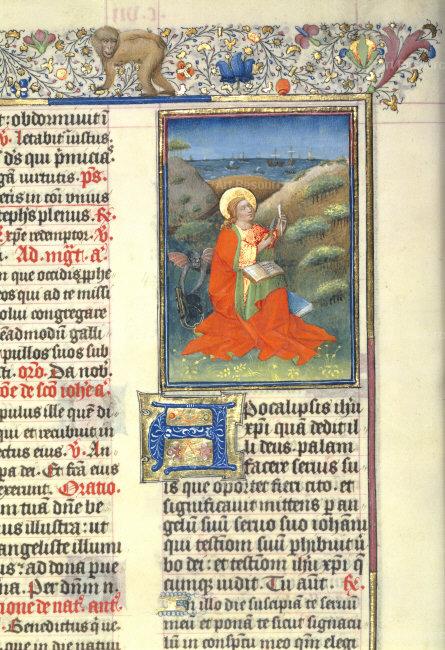 t: obdormiuit ĩ
V. letabit iustus.
ds qui
uirtutis. ps.
eris in cõi unius
ephs plenus. R.
xpe redemptor. V.
Ad mgt. a.
m que occidis pphe
eos qui ad te missi
olui congregare
eadmodũ galli
pullos suos sub
oro. Da nob.
ne de sco iohe a.
pulus ille quẽ di
qui et recubuit in
ectus eius. V. An
pa dei. Et fra eius
exerunt. Oratio.
m tuã dñe be
us illustra: ut
angeliste illumi
us: ad dona pue
na. Per dñm n.
ione de nat. ant.
Benedictus q ue
que in die natiui
Apocalipsis ihu
xpi quã dedit il
li deus palam
facere seruis su
is que oportet fieri cito. et
significauit mittens p an
gelũ suũ seruo suo iohani
qui testiom suũ phibuit ũ
bo dei: et testiom ihu xpi q
cumq uidit. Tu aut. R.
In illo die suscipiã te seruũ
meũ et ponã te sicut signacu
lũ in conspctu meo qm elegi